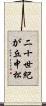 二十世紀
が丘中松